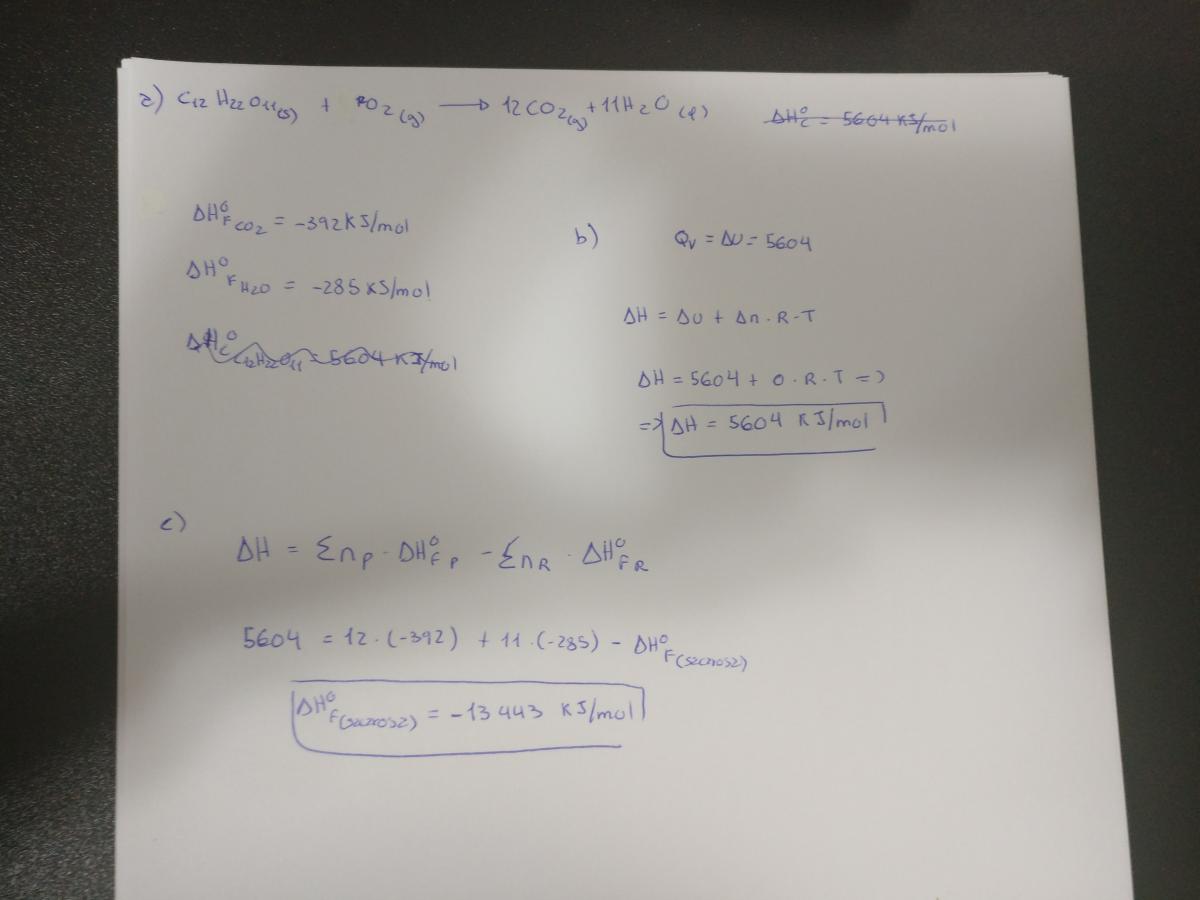 a) C12 H22 O11(s) + O2(g) → 12CO2(g) + 11H2O(l) ΔH°c = 5604 KJ/mol
ΔH°F CO2 = -392 KJ/mol
ΔH°F H2O = -285 KJ/mol
ΔH°c C12H22O11 = 5604 KJ/mol
b) Qv = ΔU = 5604
ΔH = ΔU + Δn · R · T
ΔH = 5604 + 0 · R · T =>
=> ΔH = 5604 KJ/mol
c)
ΔH = Σnp · ΔH°F P - ΣnR · ΔH°F R
5604 = 12 · (-392) + 11 · (-285) - ΔH°F(sacarosa)
ΔH°F(sacarosa) = -13443 KJ/mol